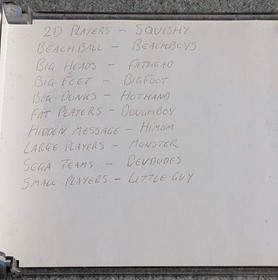 2D PLAYERS - SQUISHY
BEACH BALL - BEACHBOYS
BIG HEADS - FATHEAD
BIG FEET - BIGFOOT
BIG DUNKS - HOTHAND
FAT PLAYERS - DOUGHBOY
HIDDEN MESSAGE - HIMOM
LARGE PLAYERS - MONSTER
SEGA TEAMS - DEVDUDES
SMALL PLAYERS - LITTLE GUY